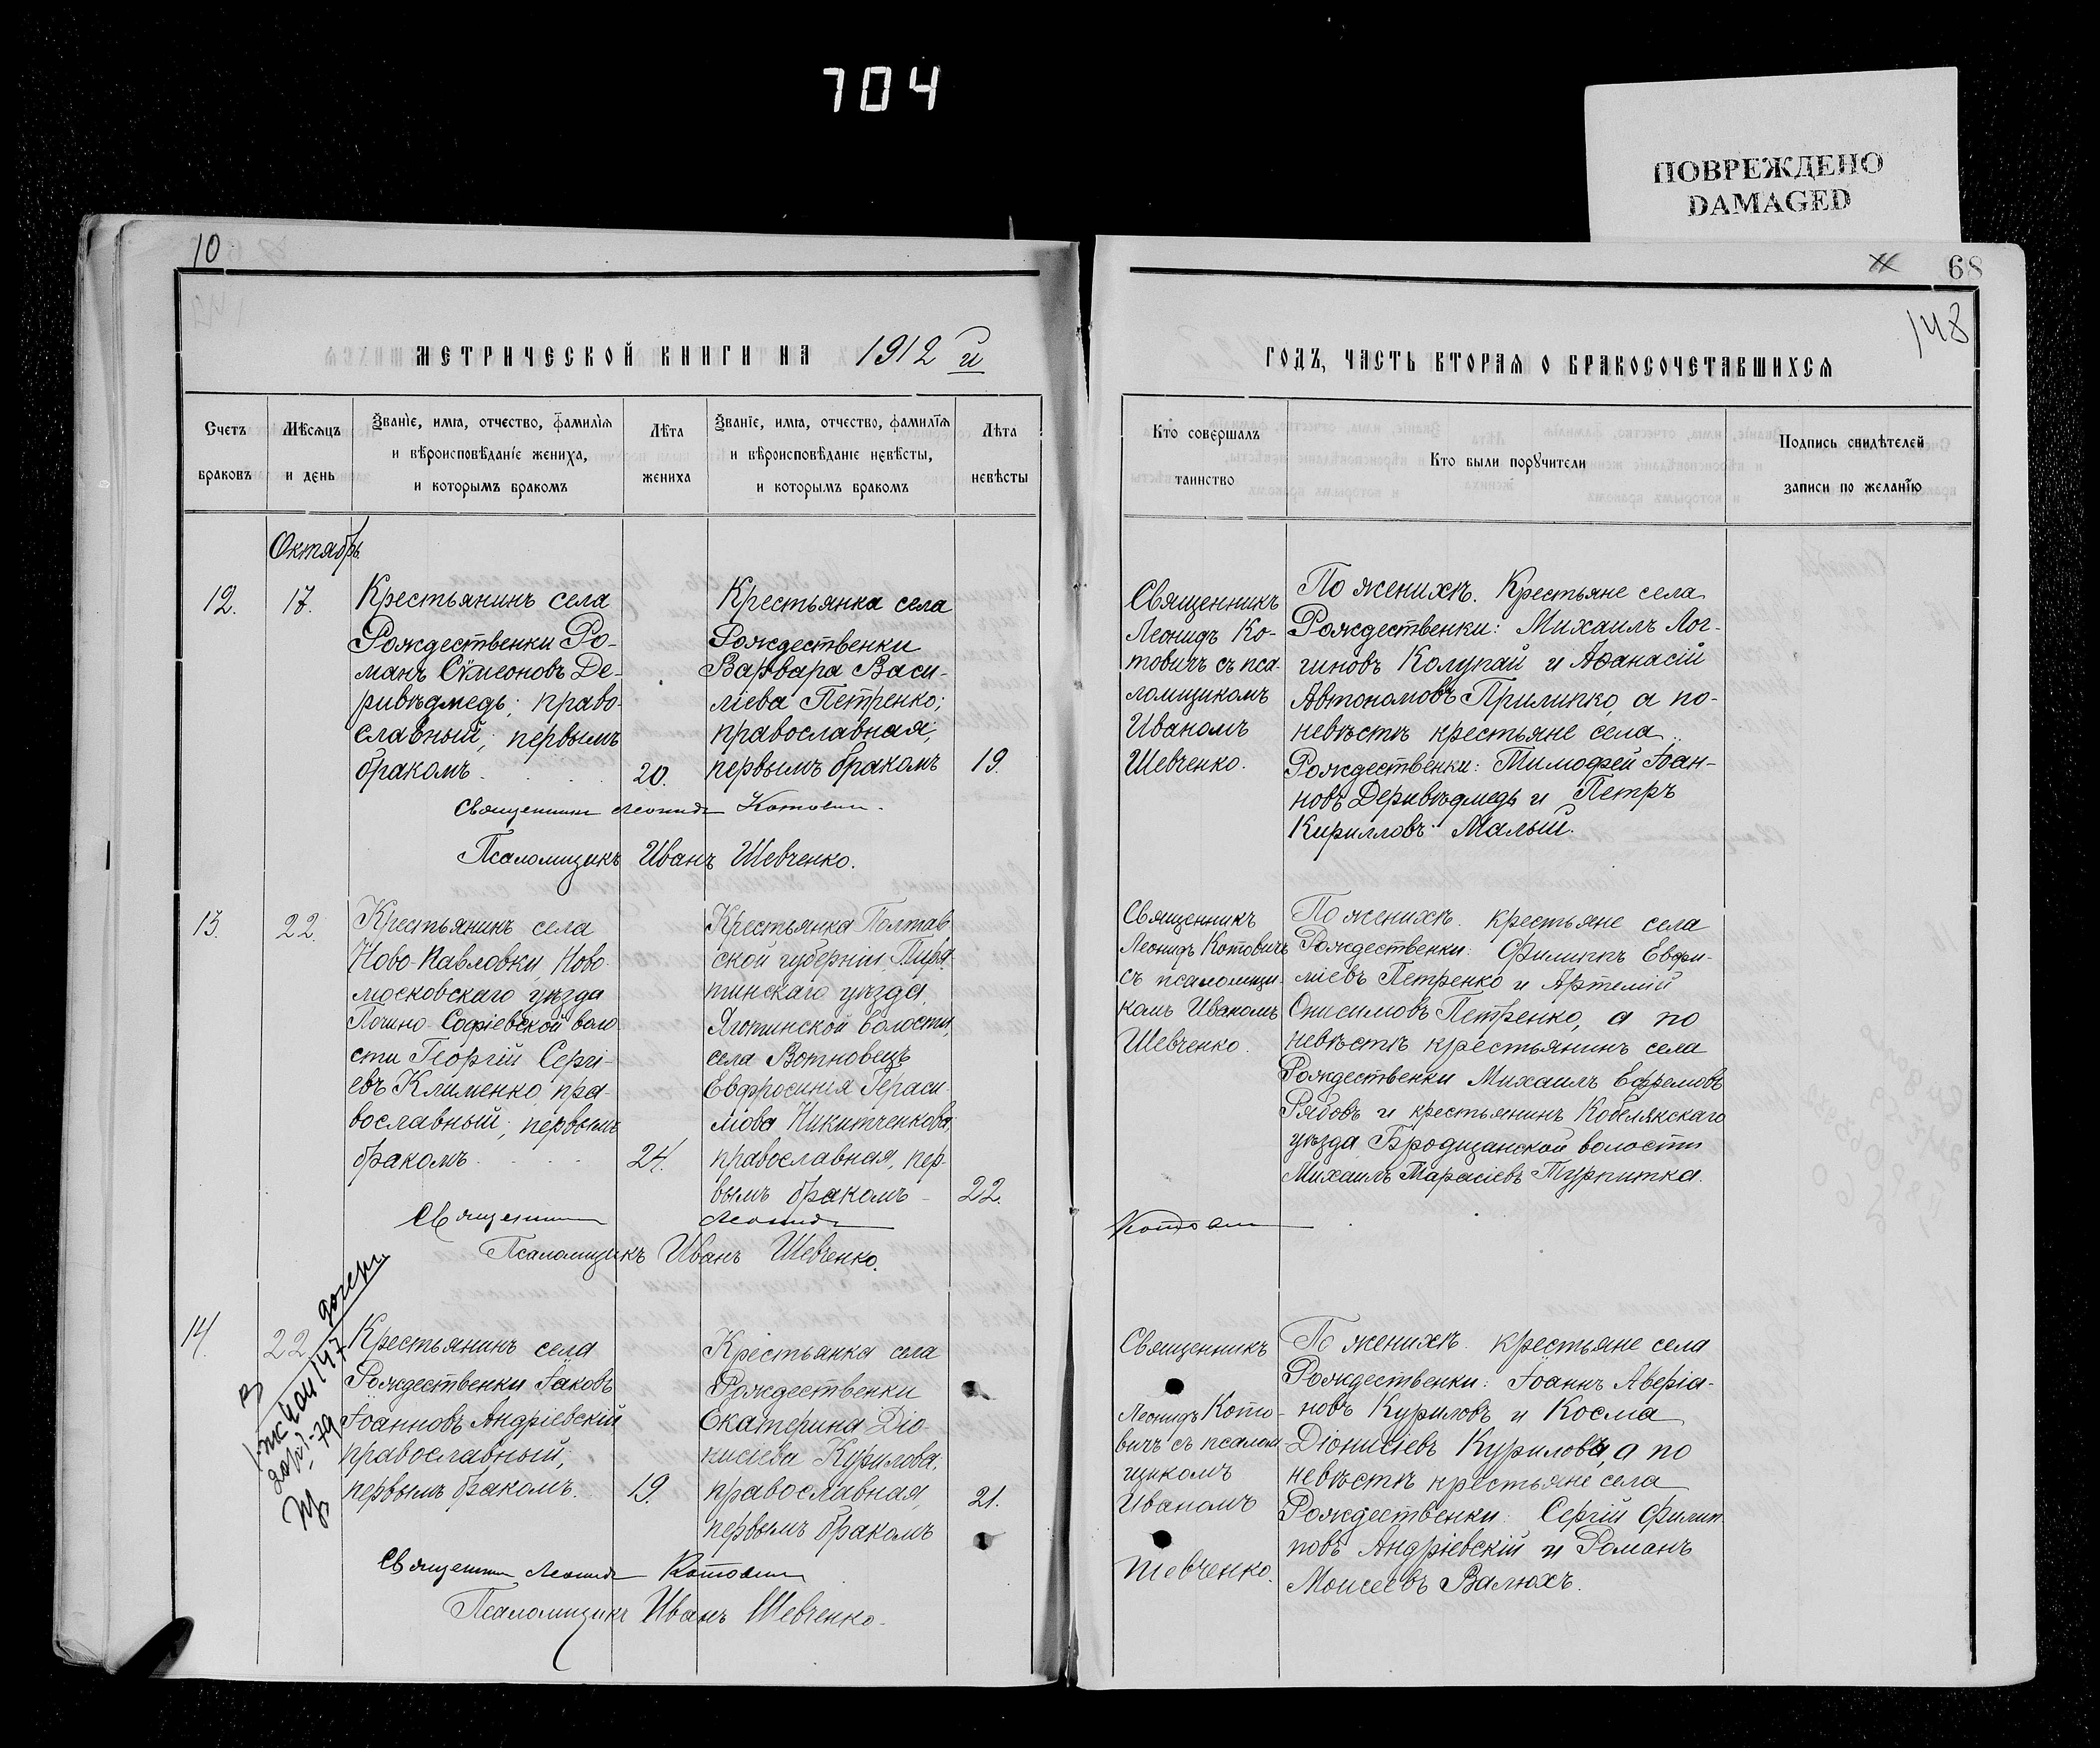 704
ПОВРЕЖДЕНО
DAMAGED
10
68
148
МЕТРИЧЕСКОЙ КНИГИ НА 1912 й
Счетъ браковъ
Мѣсяцъ и день
Званіе, имя, отчество, фамилія
и вѣроисповѣданіе жениха,
и которымъ бракомъ
Лѣта жениха
Званіе, имя, отчество, фамилія
и вѣроисповѣданіе невѣсты,
и которымъ бракомъ
Лѣта невѣсты
Октябрь
12.
17.
Крестьянинъ села
Рождественки Ро-
манъ Сѵмеоновъ Де-
ривѣдмедь; право-
славный; первымъ
бракомъ
20.
Крестьянка села
Рождественки
Варвара Васи-
ліева Петренко;
православная;
первымъ бракомъ
19.
Священникъ Леонидъ Котовичъ
Псаломщикъ Иванъ Шевченко.
13.
22.
Крестьянинъ села
Ново-Павловки Ново-
московскаго уѣзда
Почино-Софіевской воло-
сти Георгій Сергі-
евъ Клименко, пра-
вославный; первымъ
бракомъ
24.
Крестьянка Полтав
ской губерніи, Пиря-
тинскаго уѣзда,
Яготинской волости,
села
Евфросинія Гераси-
мова Никитченкова,
православная, пер-
вымъ бракомъ
22.
Священникъ Леонидъ Котовичъ
Псаломщикъ Иванъ Шевченко.
14.
22.
147
Крестьянинъ села
Рождественки Іаковъ
Іоанновъ Андріевскій
православный;
первымъ бракомъ.
19.
Крестьянка села
Рождественки
Екатерина Діо-
нисіева Курилова;
православная,
первымъ бракомъ
21.
Священникъ Леонидъ Котовичъ
Псаломщикъ Иванъ Шевченко.
ГОДЪ, ЧАСТЬ ВТОРАЯ О БРАКОСОЧЕТАВШИХСЯ
Кто совершалъ таинство
Кто были поручители
Подпись свидѣтелей
записи по желанію
Священникъ
Леонидъ Ко-
товичъ съ пса-
ломщикомъ
Иваномъ
Шевченко.
По женихѣ. Крестьяне села
Рождественки: Михаилъ Лог-
гиновъ Колупай и Аѳанасій
Автономовъ Прилипко, а по-
невѣстѣ крестьяне села
Рождественки: Тимофей Іоан-
новъ Деривѣдмедь и Петръ
Кирилловъ Малый.
Священникъ
Леонидъ Котовичъ
съ псаломщи-
комъ Иваномъ
Шевченко.
По женихѣ. крестьяне села
Рождественки: Филиппъ Евфи-
міевъ Петренко и Артемій
Онисимовъ Петренко, а по
невѣстѣ крестьянинъ села
Рождественки Михаилъ Ефремовъ
Рябовъ и крестьянинъ Кобелякскаго
уѣзда Бродщанской волости
Михаилъ Тарасіевъ Турпитка.
Священникъ
Леонидъ Кото-
вичъ съ псалом
щикомъ
Иваномъ
Шевченко.
По женихѣ. крестьяне села
Рождественки: Іоаннъ Аверіа-
новъ Куриловъ и Косма
Діонисіевъ Куриловъ, а по
невѣстѣ крестьяне села
Рождественки: Сергій Филип-
повъ Андріевскій и Романъ
Моисеевъ Валюхъ.